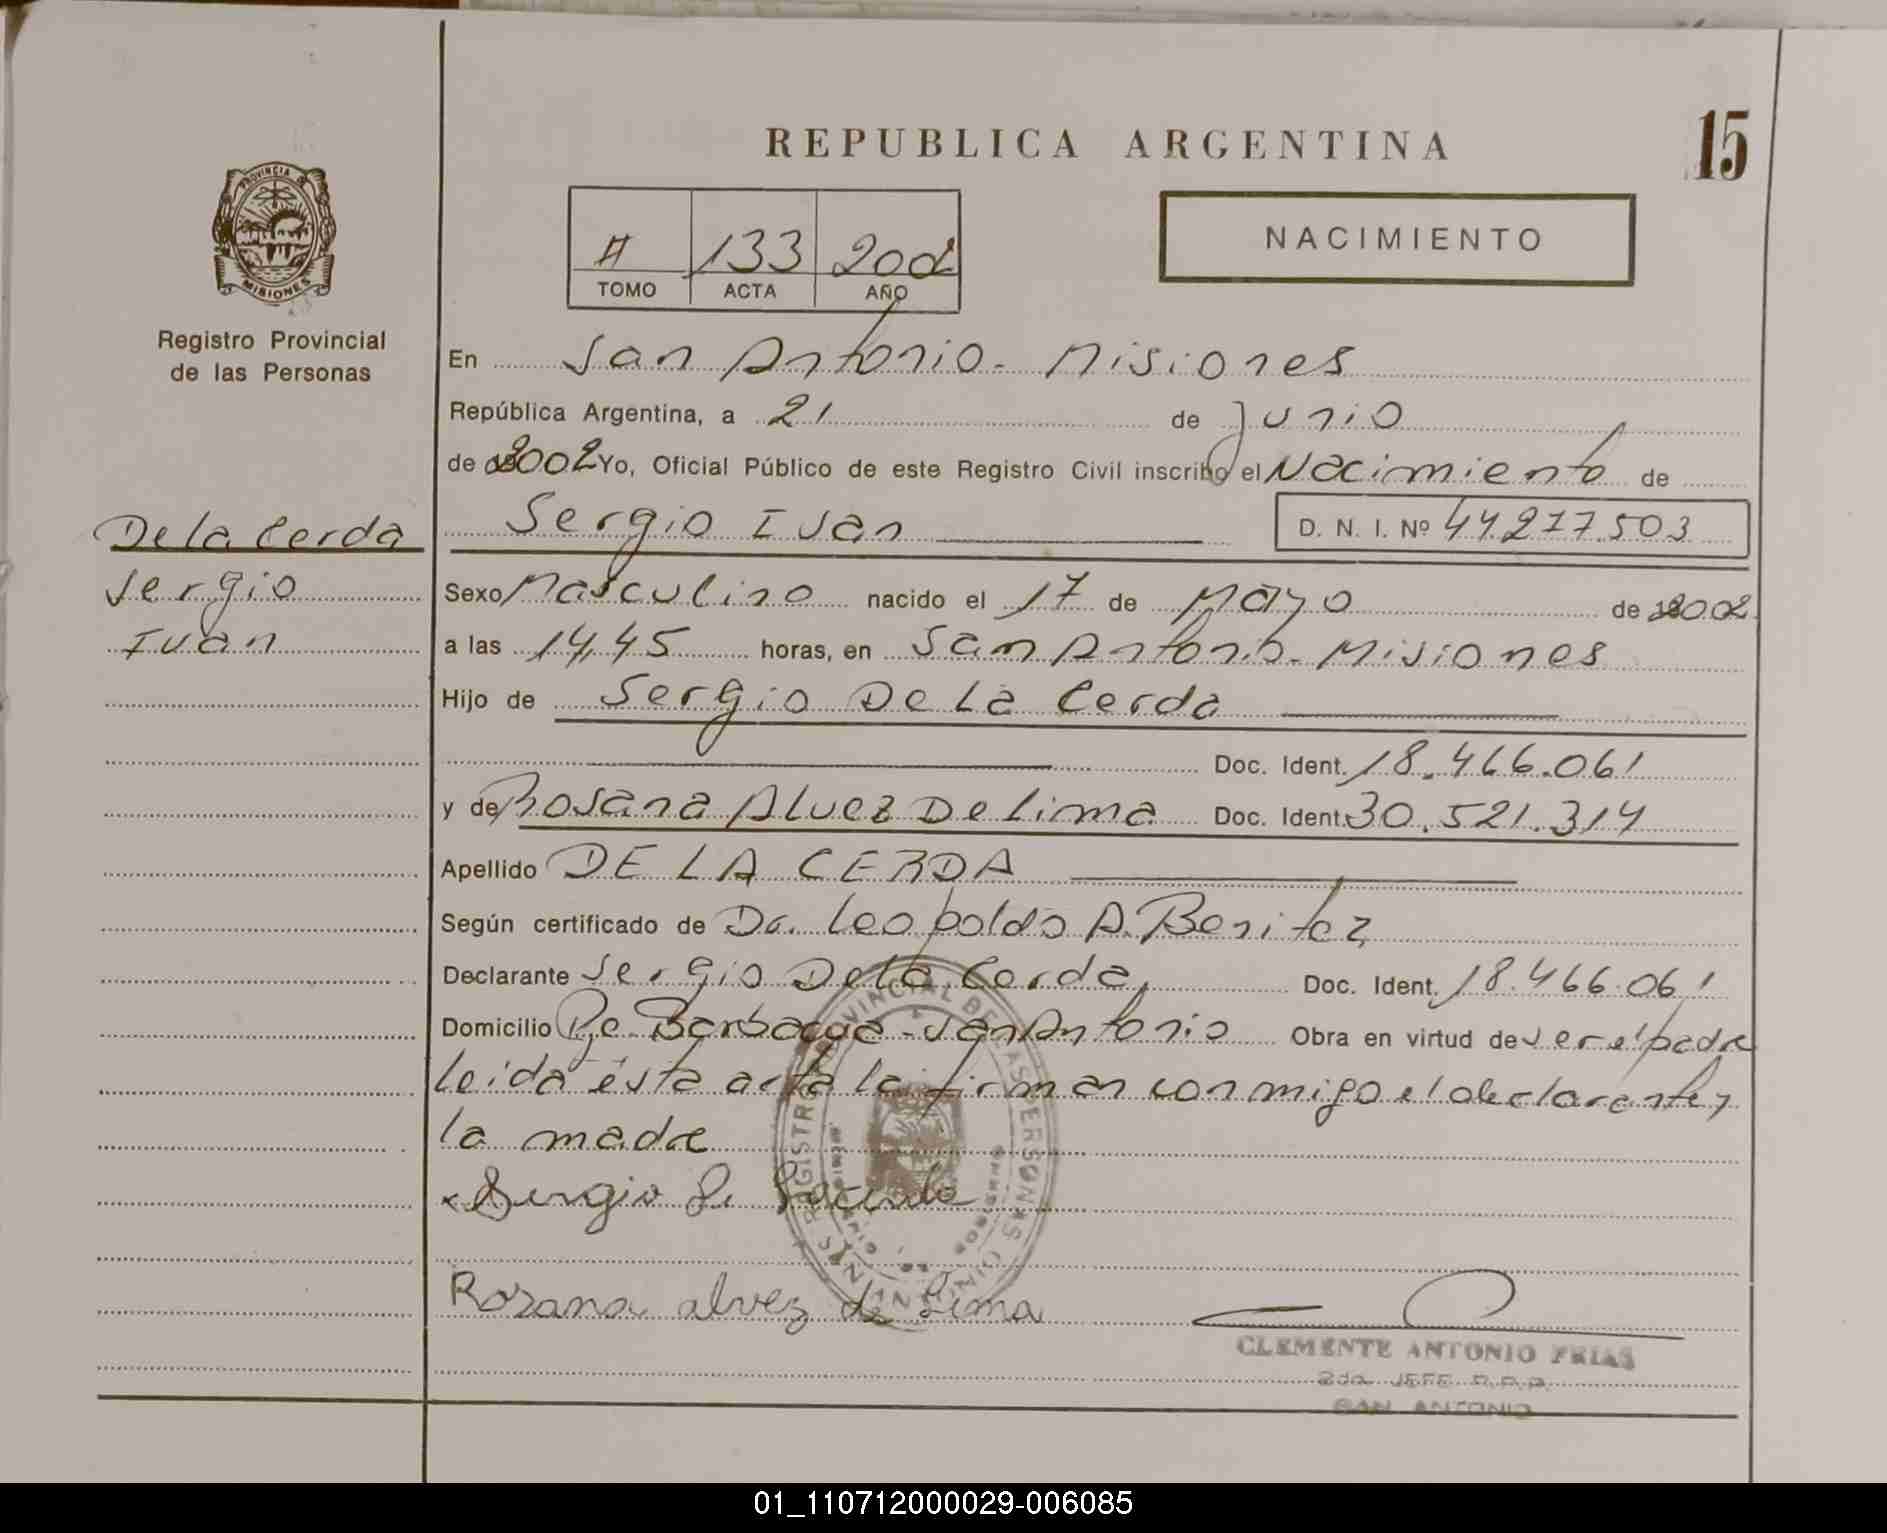 REPUBLICA ARGENTINA
15
PROVINCIA DE
MISIONES
Registro Provincial
de las Personas
II 133 2002
TOMO ACTA AÑO
NACIMIENTO
En San Antonio - Misiones
República Argentina, a 21 de Junio
de 2002 Yo, Oficial Público de este Registro Civil inscribo el Nacimiento de
Sergio Ivan D. N. I. Nº 44.277.503
De la Cerda
Sergio
Ivan
Sexo Masculino nacido el 17 de Mayo de 2002
a las 14,45 horas, en San Antonio - Misiones
Hijo de Sergio De La Cerda
Doc. Ident. 18.466.061
y de Rosana Alvez De Lima Doc. Ident. 30.521.314
Apellido DE LA CERDA
Según certificado de Dr. Leopoldo A. Benitez
Declarante Sergio De la Cerda, Doc. Ident. 18.466.061
Domicilio Pje Barbacua - San Antonio Obra en virtud de ser el padre
leida ésta acta la firman conmigo el declarante y
la madre
x Sergio De La Cerda
Rozana alvez de Lima
REGISTRO PROVINCIAL DE LAS PERSONAS
CLEMENTE ANTONIO FRIAS
2do. JEFE R.P.P.
SAN ANTONIO
01_110712000029-006085